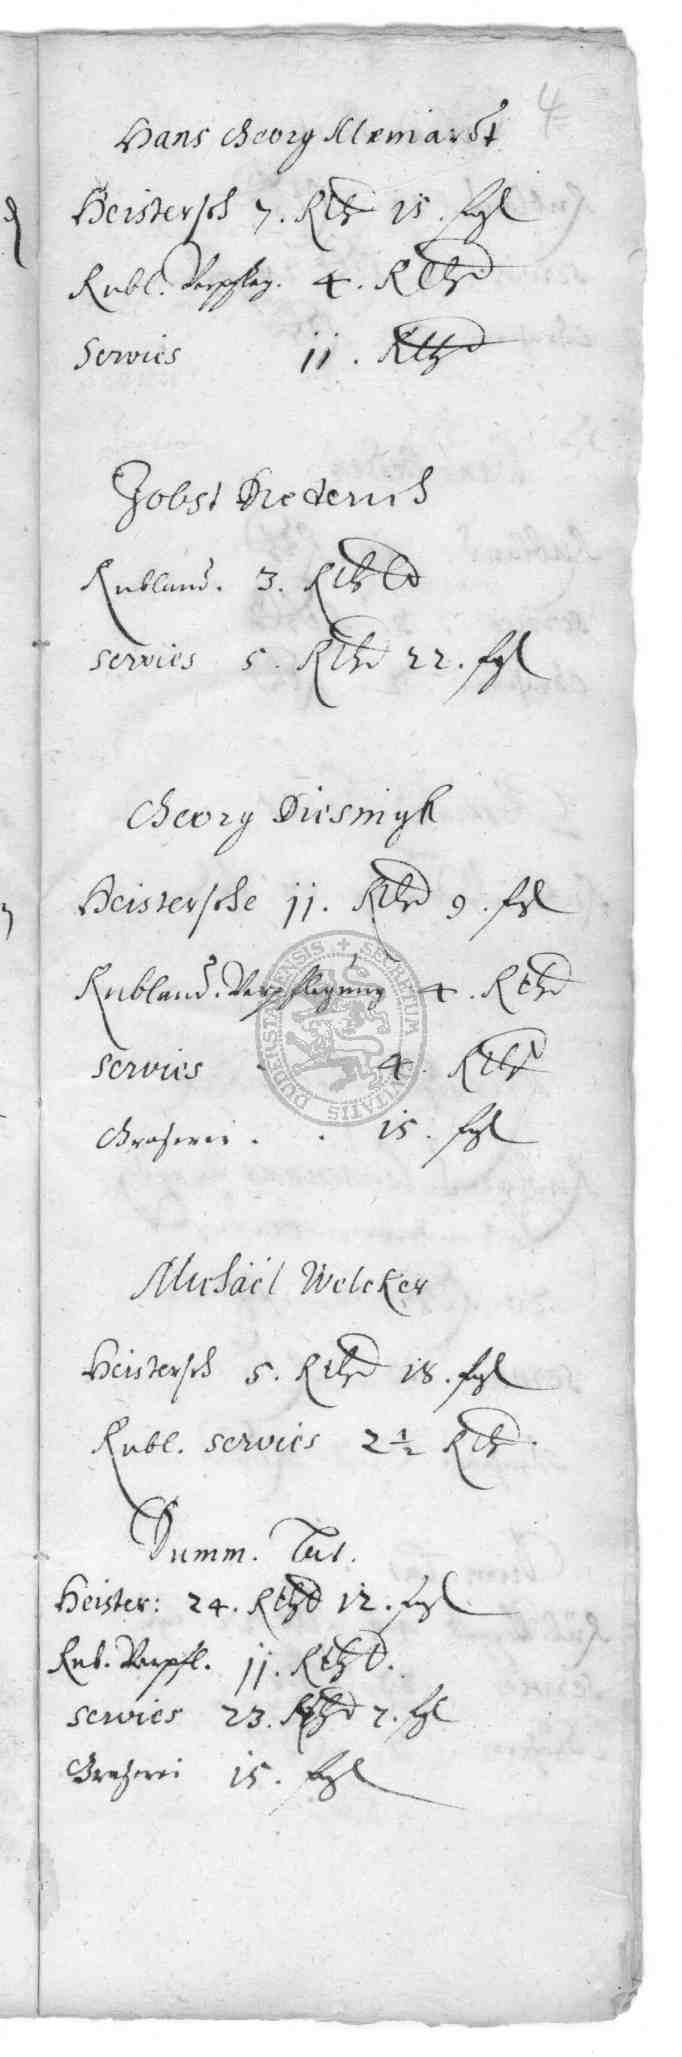 4
Hans Georg Klemardt
Heistersch 7. Rthd 15. fgl
Rubl. Verpfleg. 4. Rthd
Servies 11. Rthd
Jobst Diederich
Rubland. 3. Rthld
servies 5. Rthd 22. fgl
Georg Diesingk
Heistersche 11. Rthd 9. fgl
Rubland. Verpflegung 4. Rthd
servies 4. Rthd
Graserei . . 15. fgl
Michäel Welcker
Heistersch 5. Rthd 18. fgl
Rubl. servies 2 1/2 Rthd.
Summ. Tas.
Heister: 24. Rthd 12. fgl
Rub. Verpfl. 11. Rthd.
servies 23. Rthd 7. fgl
Graserei 15. fgl
SECRETUM CIVITATIS DUDERSTADENSIS